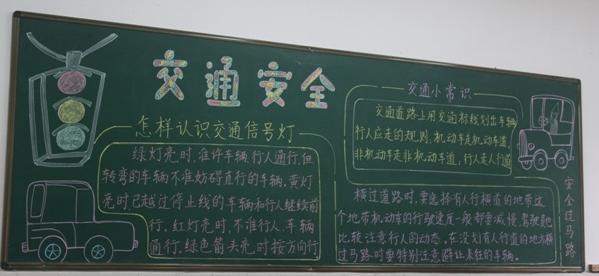 交通安全
怎样认识交通信号灯
绿灯亮时,准许车辆,行人通行,但
转弯的车辆不准妨碍直行的车辆,黄灯
亮时已越过停止线的车辆和行人继续前
行,红灯亮时,不准行人,车辆
通行,绿色箭头亮时按方向行
交通小常识
交通道路上用交通标线划出车辆
行人应走的规则,机动车走机动车道,
非机动车走非机动车道,行人走人行道
横过道路时,要选择有人行横道的地带这
个地带机动车的行驶速度一般都要减慢,驾驶员也
比较注意行人的动态,在没划有人行道的地方横
过马路时要特别注意避让来往的车辆。
安全过马路